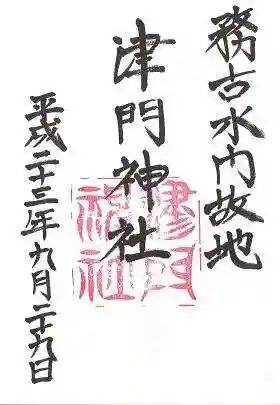 務古水門故地
津門神社
平成二十三年九月二十九日
津門
神社